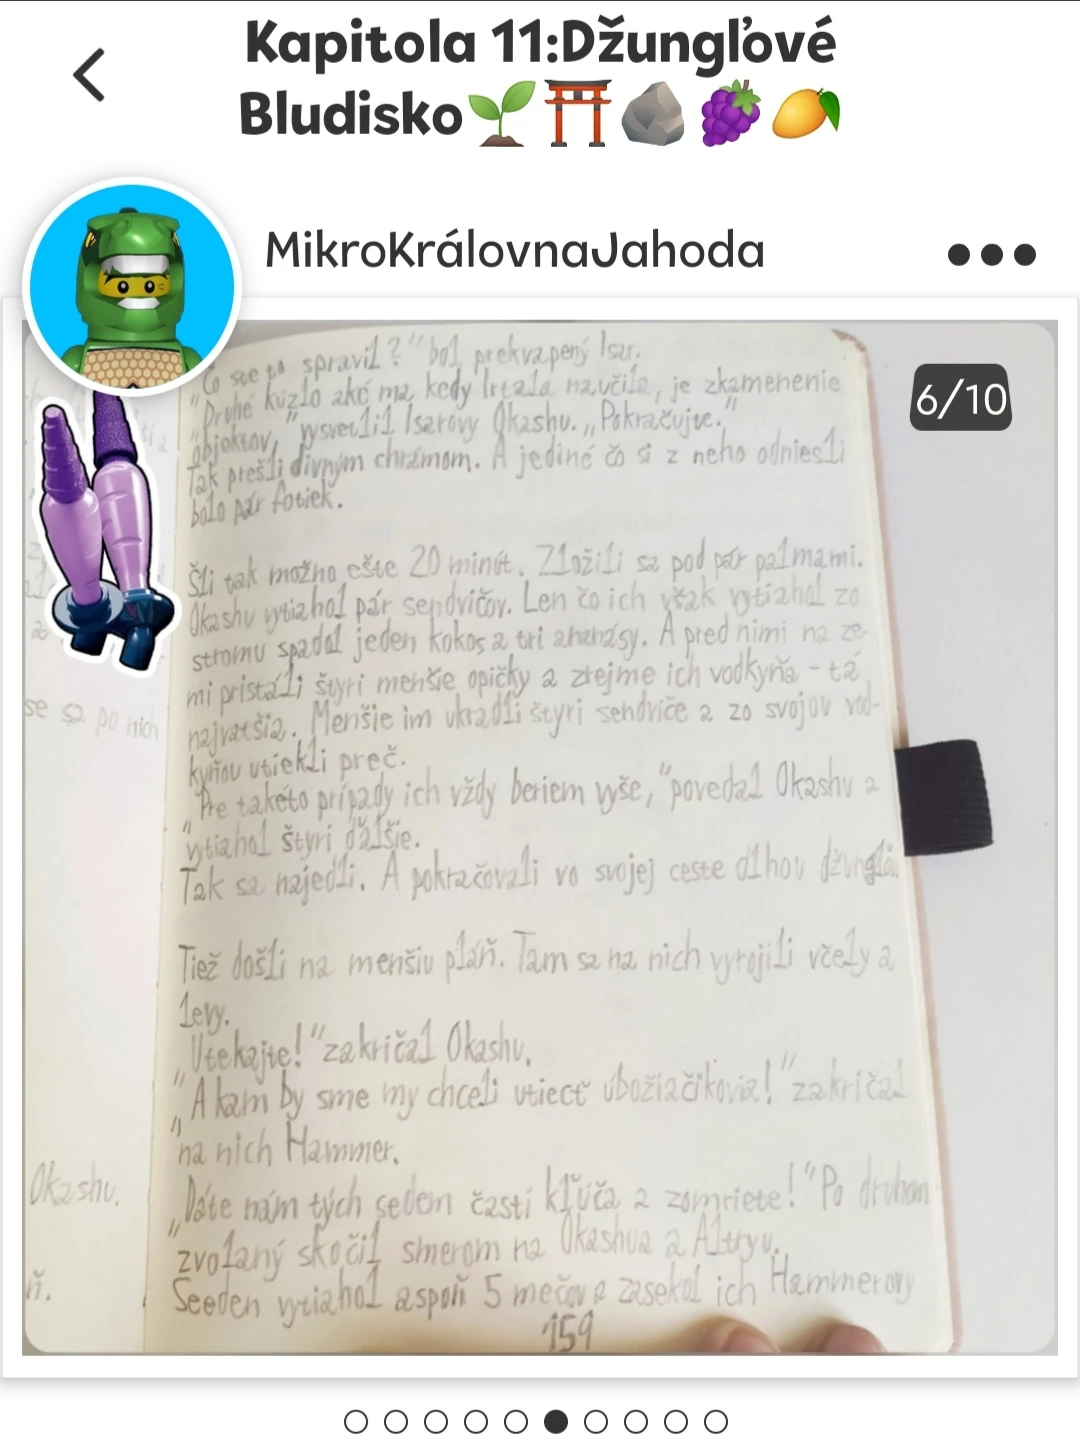 Kapitola 11:Džungľové
Bludisko
MikroKrálovnaJahoda
6/10
"Čo ste to spravil?" bol prekvapený Isar.
"Druhé kúzlo aké ma kedy Irtala naučila, je zkamenenie
objektov," vysvetlil Isarovy Okashu. „Pokračujte."
Tak prešli divným chrámom. A jediné čo si z neho odniesli
bolo pár fotiek.
Šli tak možno ešte 20 minút. Zložili sa pod pár palmami.
Okashu vytiahol pár sendvičov. Len čo ich však vytiahol zo
stromu spadol jeden kokos a tri ananásy. A pred nimi na ze-
mi pristáli štyri menšie opičky a zrejme ich vodkyňa - tá
najvatšia. Menšie im ukradli štyri sendviče a zo svojou vod-
kyňou utiekli preč.
„Pre takéto prípady ich vždy beriem vyše," povedal Okashu a
vytiahol štyri ďalšie.
Tak sa najedli. A pokračovali vo svojej ceste dlhou
Tiež došli na menšiu pláň. Tam sa na nich vyrojili včely a
levy.
„Utekajte!" zakričal Okashu.
„A kam by sme my chceli utiecť úbožiačikovia!" zakričal
na nich Hammer.
„Dáte nám tých sedem častí kľúča a zomriete!" Po druhom
zvolaný skočil smerom na Okashua a Altryu.
Seeden vytiahol aspoň 5 mečov a zasekol ich Hammerovy
159
se sa po nich
Okashu.
ň.